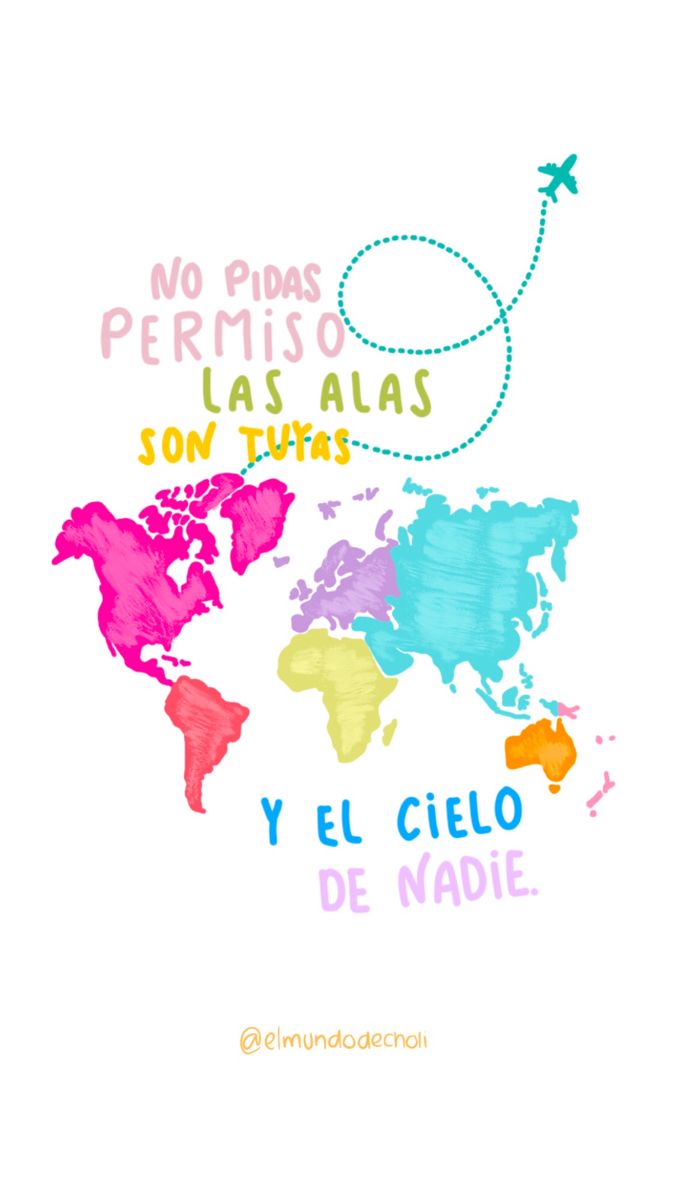 NO PIDAS
PERMISO
LAS ALAS
SON TUYAS
Y EL CIELO
DE NADIE.
@elmundodecholi